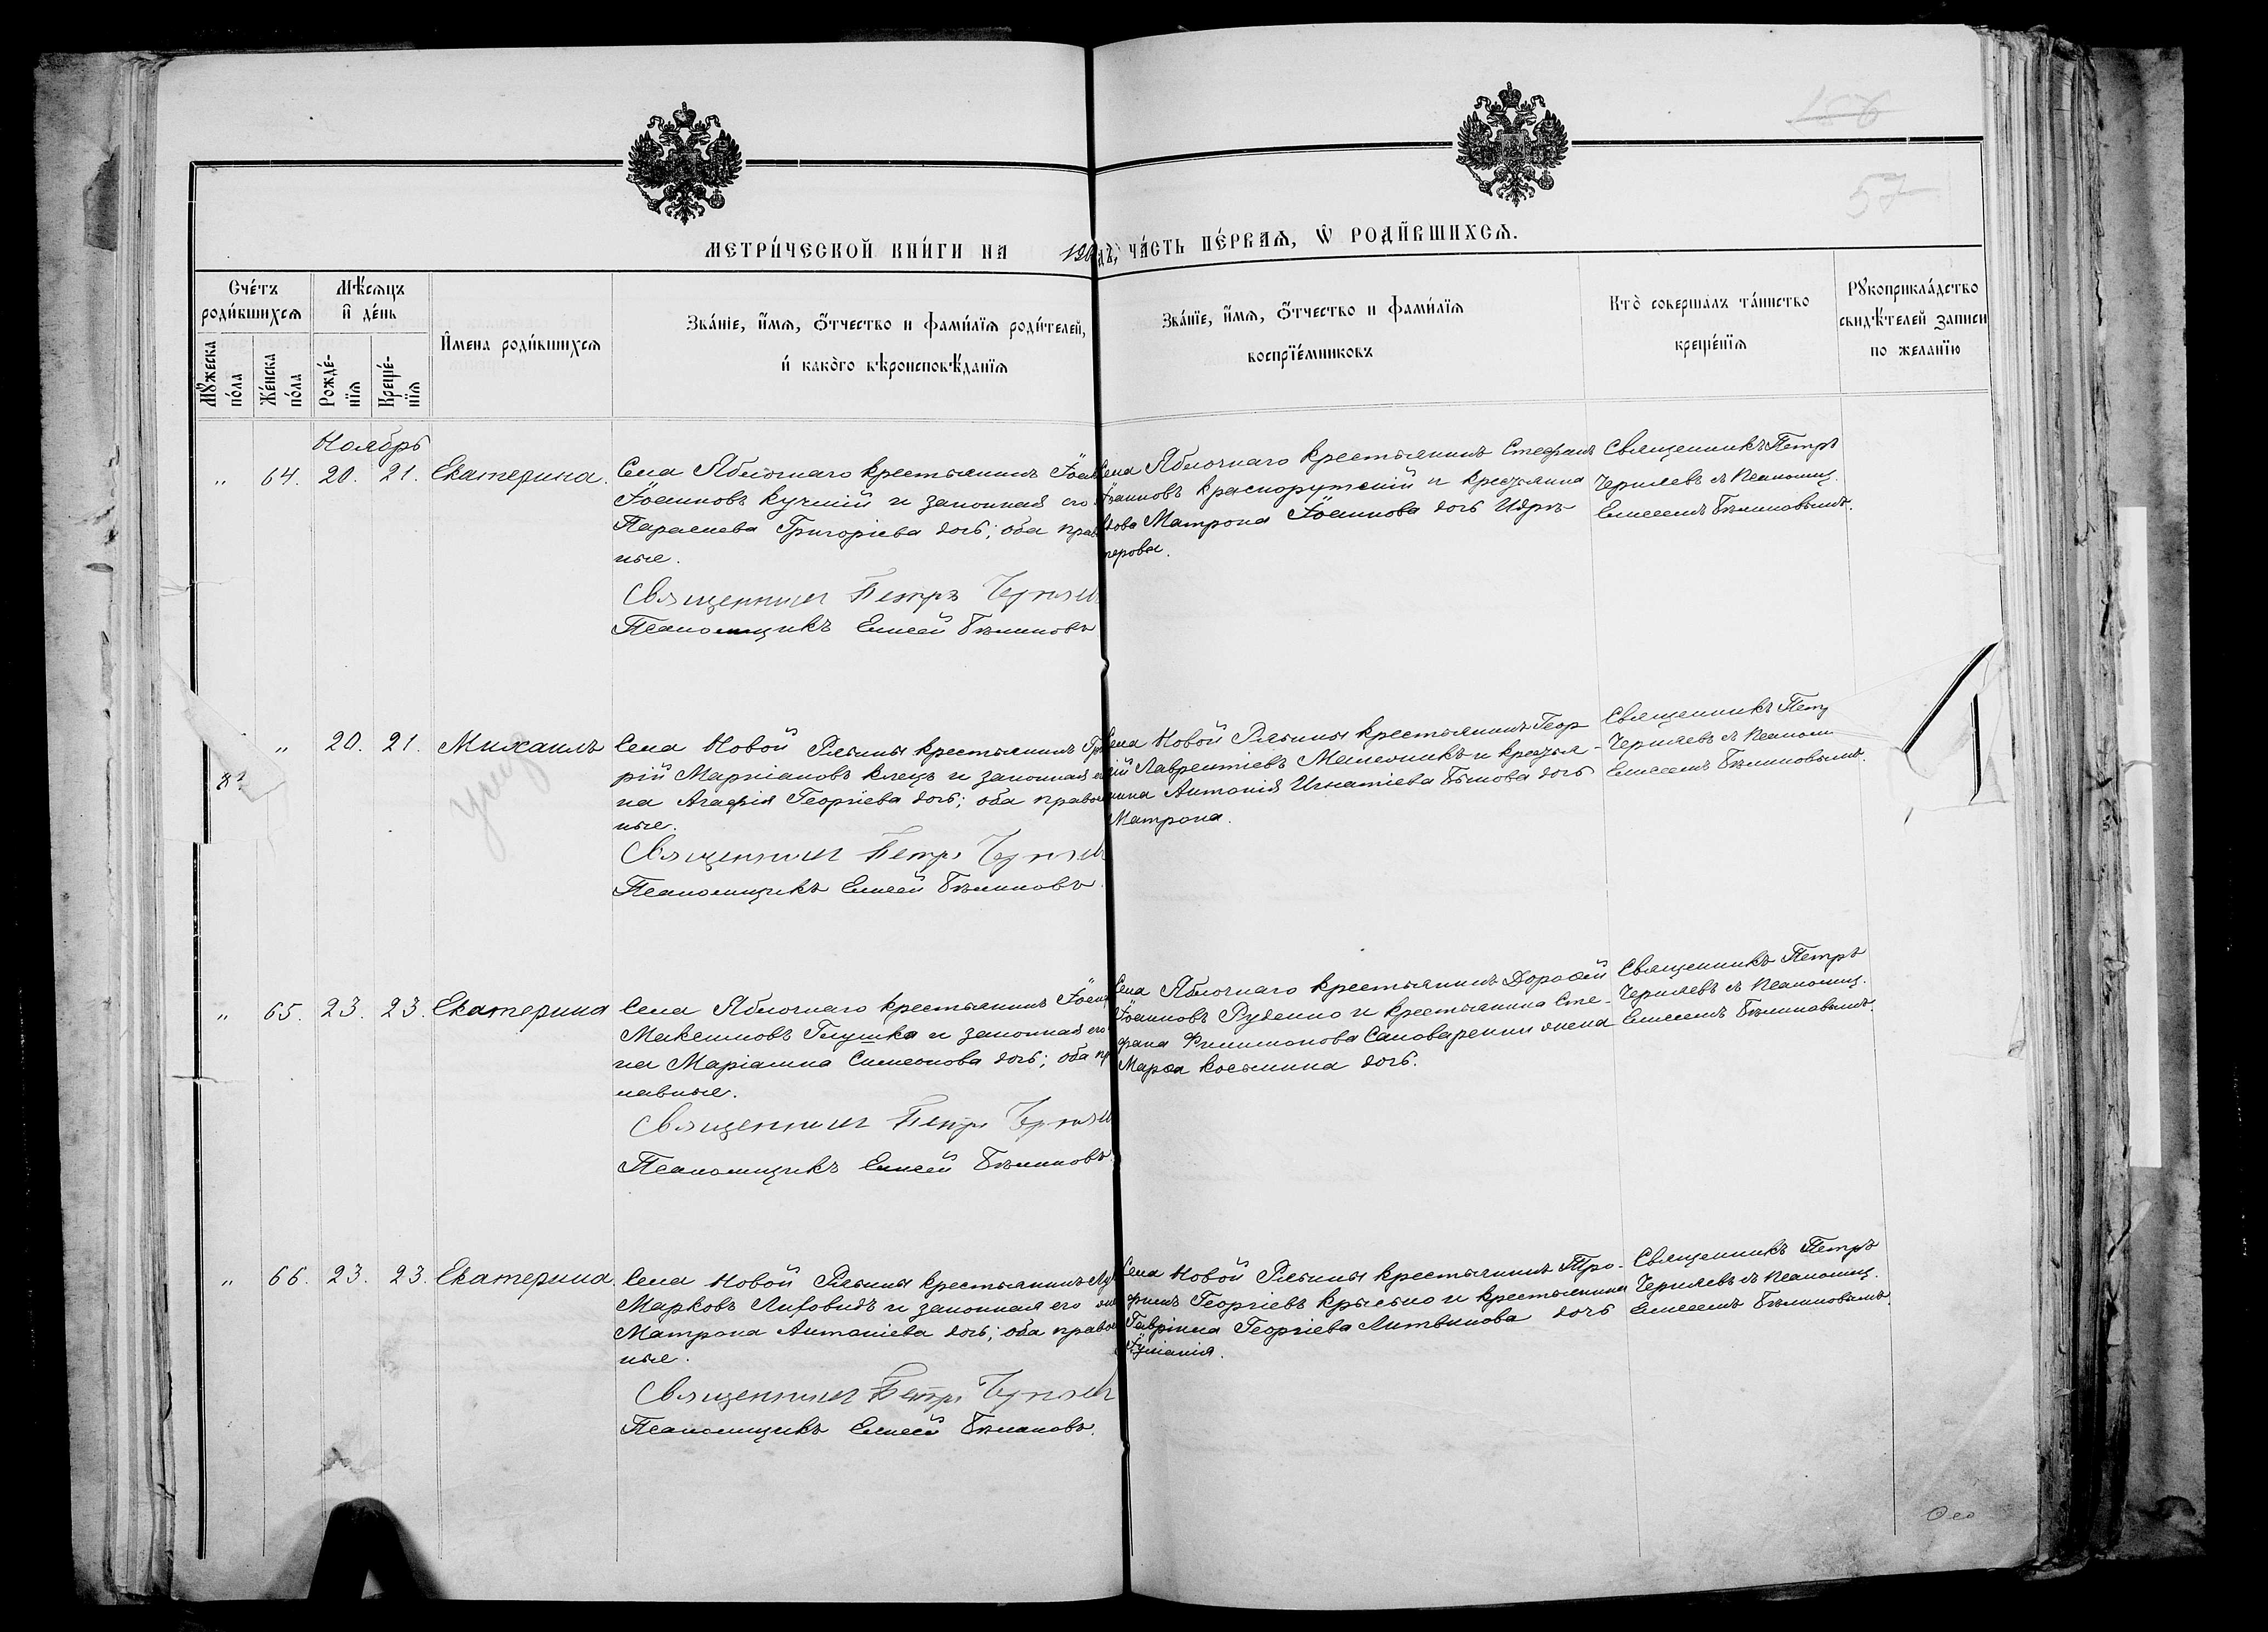 57
МЕТРИ́ЧЕСКОЙ КНИ́ГИ НА 190 ДЪ, ЧА́СТЬ ПЕ́РВАѦ, Ѡ҆ РОДИ́ВШИХСѦ.
Сче́тъ роди́вшихсѧ
Мѣ́сѧцъ и҆ де́нь
И҆мена роди́вшихсѧ
Зва́нїе, и҆́мѧ, ѻ҆́тчество и фами́лїѧ роди́телей,
и҆ како́го вѣроисповѣ́данїѧ
Зва́нїе, и҆́мѧ, ѻ҆́тчество и фами́лїѧ
воспрїе́мниковъ
Кто̀ соверша́лъ та́инство
креще́нїѧ
Рꙋкоприкла́дство
свидѣ́телей записи
по жела́нїю
Мꙋ́жеска по́ла
Же́нска по́ла
Рожде́нїѧ
Креще́нїѧ
Ноябрь
" 64. 20. 21. Екатерина.
Села Яблочнаго крестьянинъ
Іоанновъ Кучмій и законная его
Параскева Григоріева дочь; оба прав
ные.
Священникъ Петръ
Псаломщикъ Елисей Бѣлиновъ
Села Яблочнаго крестьянинъ Стефанъ
Іоанновъ Краснорутскій и крестьянина
Матрона Іоаннова дочь
Священникъ Петръ
Черняевъ съ псаломщ.
Елисеемъ Бѣлиновымъ.
" 20. 21. Михаилъ
Села Новой Рябины крестьянинъ
рій Маркіановъ Клецъ и законная
на Агафія Георгіева дочь; оба правос
ные.
Священникъ Петръ
Псаломщикъ Елисей Бѣлиновъ
Села Новой Рябины крестьянинъ Геор
гій Лаврентіевъ Мельникъ и крестья-
нина Антонія Игнатіева Быкова дочь
Матрона.
Священникъ Петръ
Черняевъ съ псаломщ
Елисеемъ Бѣлиновымъ.
" 65. 23. 23. Екатерина
Села Яблочнаго крестьянинъ
Максимовъ Глушко и законная его
на Маріамна Симеонова дочь; оба пр
лавные.
Священникъ Петръ
Псаломщикъ Елисей Бѣлиновъ.
Села Яблочнаго крестьянинъ Дороѳей
Іоанновъ Руденко и крестьянина Сте-
фана Филимонова жена
Марѳа Косьмина дочь.
Священникъ Петръ
Черняевъ съ псаломщ.
Елисеемъ Бѣлиновымъ.
" 66. 23. 23. Екатерина
Села Новой Рябины крестьянинъ
Марковъ Лиховидъ и законная его
Матрона Антоніева дочь; оба правос
ные.
Священникъ Петръ
Псаломщикъ Елисей Бѣлиновъ.
Села Новой Рябины крестьянинъ Тро-
фимъ Георгіевъ и крестьянина
Гавріила Георгіева Литвинова дочь
Іуліанія.
Священникъ Петръ
Черняевъ съ псаломщ.
Елисеемъ Бѣлиновымъ.